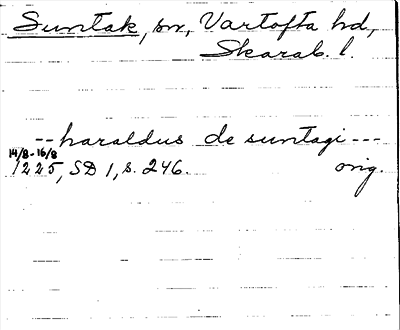 Suntak, sn, Vartofta hd,
Skarab. l.
-- haraldus de suntagi ---
14/8-16/8
1225, SD 1, s. 246. orig.